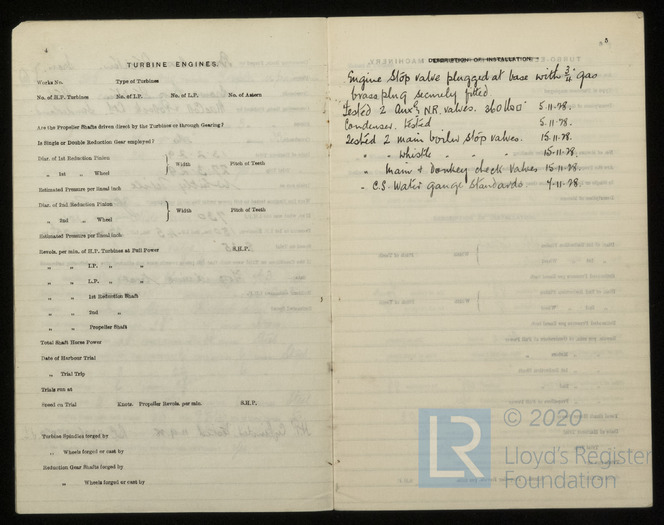 4
TURBINE ENGINES.
Works No. Type of Turbines
No. of H.P. Turbines No. of I.P. No. of L.P. No. of Astern
Are the Propeller Shafts driven direct by the Turbines or through Gearing?
Is Single or Double Reduction Gear employed?
Diar. of 1st Reduction Pinion
„ 1st „ Wheel
Width Pitch of Teeth
Estimated Pressure per lineal inch
Diar. of 2nd Reduction Pinion
„ 2nd „ Wheel
Width Pitch of Teeth
Estimated Pressure per lineal inch
Revols. per min. of H.P. Turbines at Full Power S.H.P.
„ „ I.P. „ „
„ „ L.P. „ „
„ „ 1st Reduction Shaft
„ „ 2nd „
„ „ Propeller Shaft
Total Shaft Horse Power
Date of Harbour Trial
„ Trial Trip
Trials run at
Speed on Trial Knots. Propeller Revols. per min. S.H.P.
Turbine Spindles forged by
„ Wheels forged or cast by
Reduction Gear Shafts forged by
„ Wheels forged or cast by
5
DESCRIPTION OF INSTALLATION.
Engine Stop valve plugged at base with gas
brass plug securely fitted.
Tested 2 Aux N.R. valves. 360 lbs 5.11.28.
Condenser. tested 5.11.28.
Tested 2 main boiler stop valves. 15.11.28.
„ „ Whistle „ „ 15.11.28.
„ main & Donkey check valves 15.11.28.
„ C.S. Water Gauge Standards. 7.11.28.
© 2020
LR
Lloyd's Register
Foundation